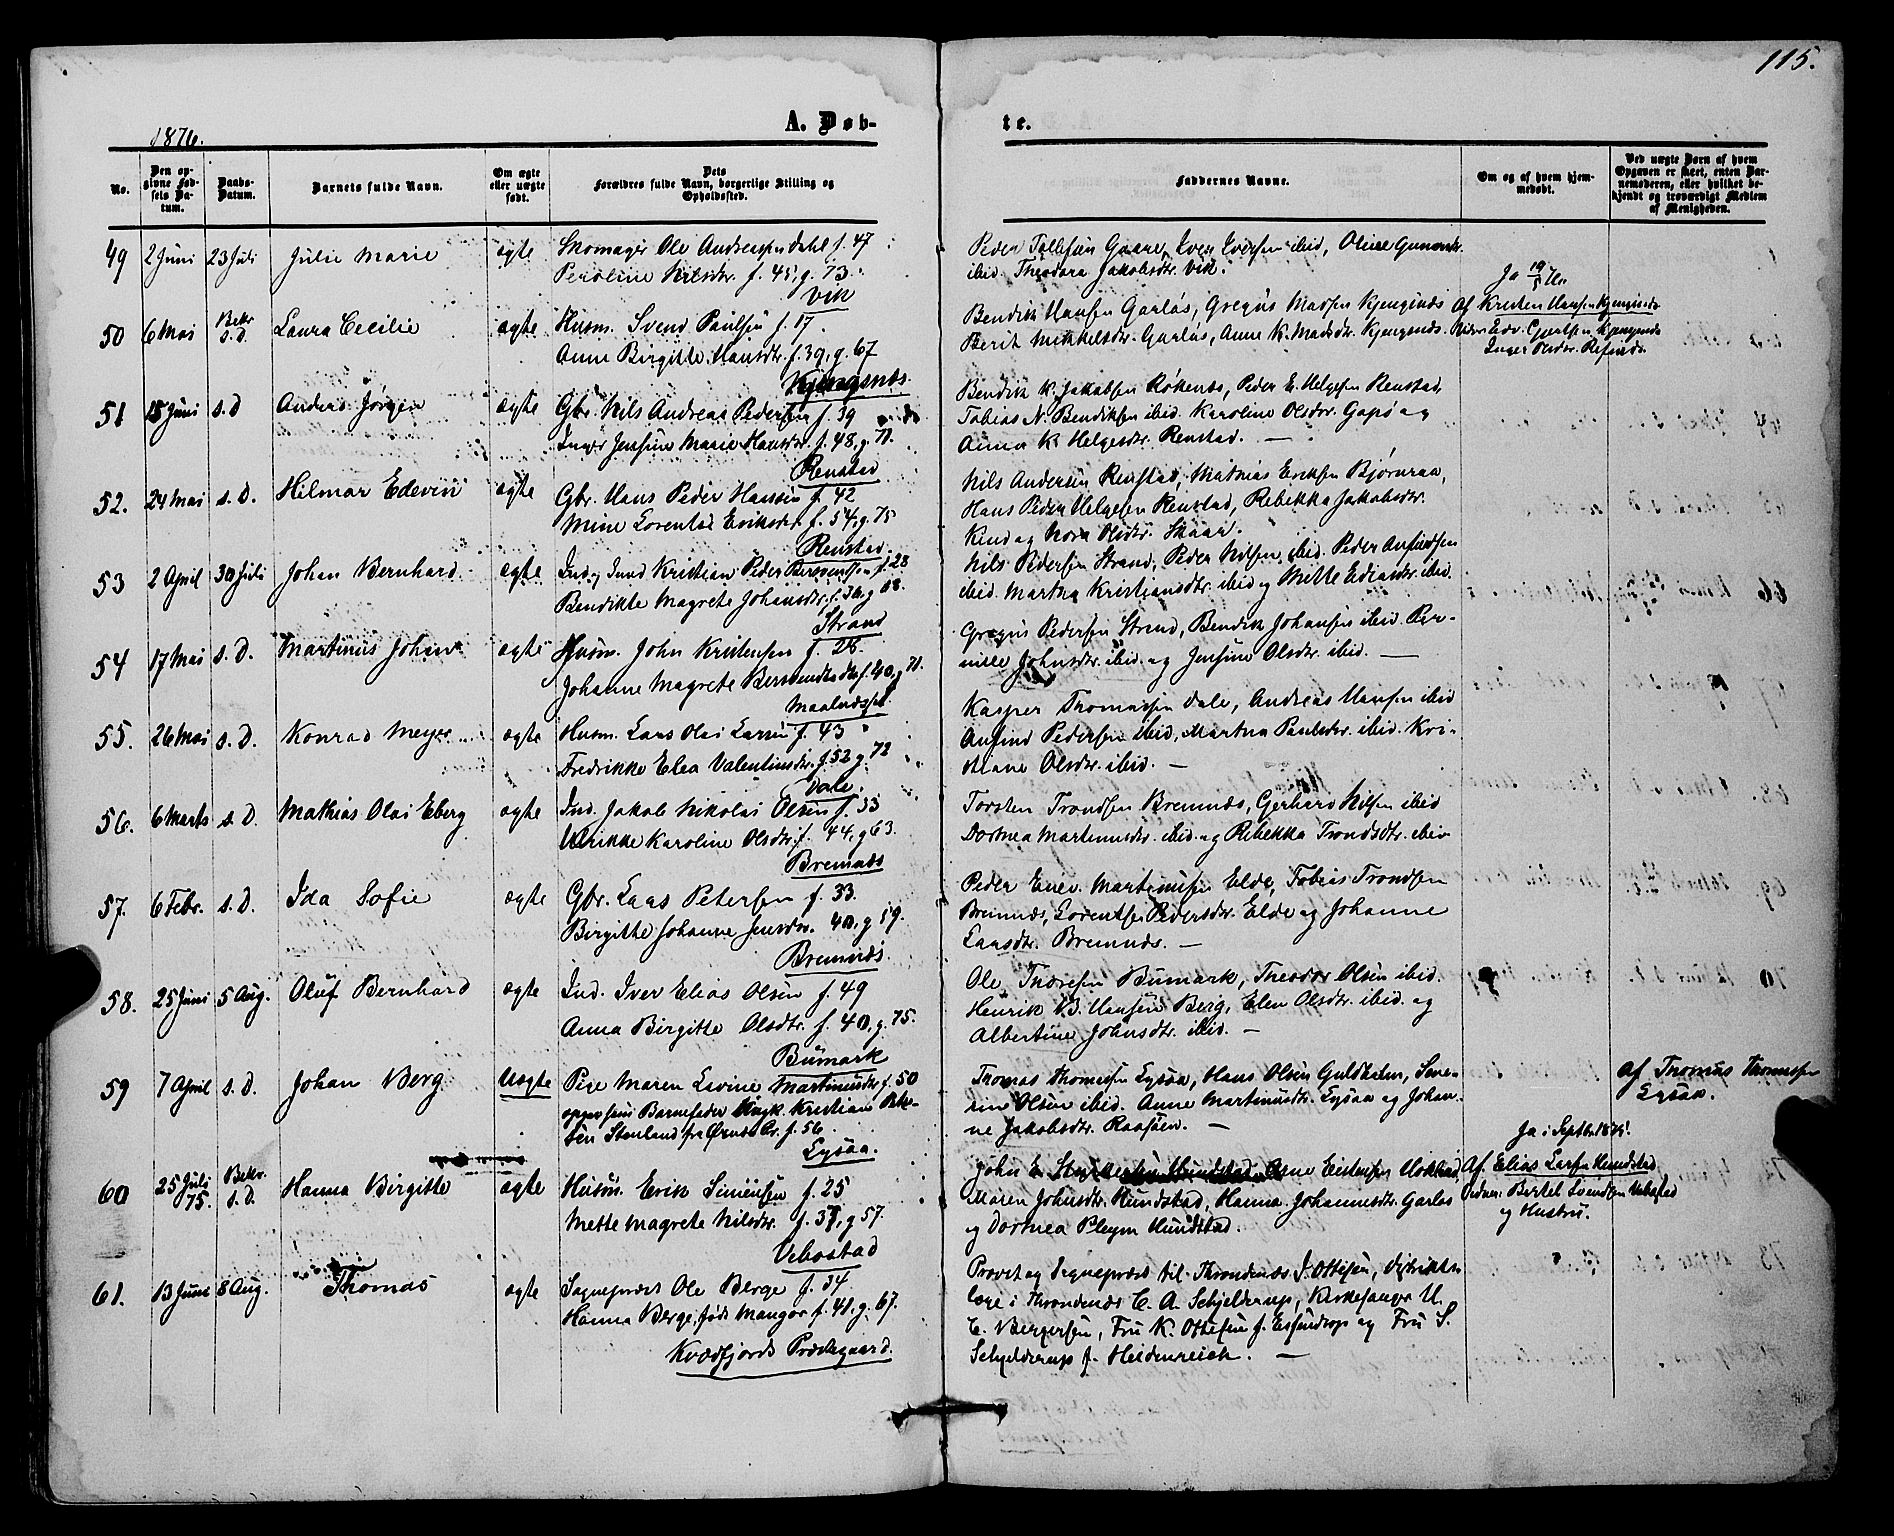 115.
1876.
A. Døb-
te.
No.
Den op-
givne Fød-
sels Da-
tum.
Daabs-
Datum.
Barnets fulde Navn.
Om ægte
eller uægte
født.
Dets
Forældres fulde Navn, borgerlige Stilling og
Opholdssted.
Faddernes Navne.
Om og af hvem hjem-
medøbt.
Ved uægte Børn af hvem
Opgaven er skeet, enten Bar-
nemoderen, eller hvilket be-
kjendt og troværdigt Medlem
af Menigheden.
49 2 Juni 23 Juli Julie Marie ægte Skomager Ole Andreassen Dahl f. 47
Peroline Nilsdtr. f. 45, g. 73.
Vik
Peder Tollefsen Gaare, Iver Iversen ibid, Oline
ibid. Theodora Jakobsdtr. Vik.
50 6 Mai Bekr. s. D. Laura Cecilie ægte Husm. Svend Paulsen f. 17.
Anne Birgitte Hansdtr. f. 39, g. 67
Kjengsnæs.
Bendik Hansen Gaaløs, Gregus Madsen Kjengsnæs
Berit Mikkelsdtr. Gaaløs, Anne K. Madsdtr. Kjengsnæs.
Ja
Af Kristen Hansen Kjengsnæs
Edv. Gjertsen Kjengsnæs
Inger
51 15 Juni s. D Anders Jørgen ægte Gbr. Nils Andreas Pedersen f. 39
Inger Jensine Marie Hansdtr. f. 48, g. 71.
Renstad
Bendik K. Jakobsen Røkenes, Peder E. Helgesen Renstad,
Tobias N. Bendiksen ibid. Karoline Olsdtr. Gapø og
Anna K. Helgesdtr. Renstad. —
52. 24 Mai s. D. Hilmar Edevin ægte Gbr. Hans Peder Hansen f. 42
Mine Lorentse Eriksdtr f. 54, g. 75
Renstad.
Nils Andersen Renstad, Mathias Eriksen Bjørnraa,
Hans Peder Helgesen Renstad, Rebekka Jakobsdtr.
Kind og Nora Olsdtr. Skaar.
53 2 April 30 Juli Johan Bernhard ægte Ind. Kristian Peder f. 28
Bendikte Magrete Johansdtr. f. 36 g 63.
Strand
Nils Pedersen Strand, Peder Nilsen ibid. Peder Anfindsen
ibid. Martha Kristiansdtr. ibid og Mette ibid.
54 17 Mai s. D. Martinus Johan ægte Husm. John Kristensen f. 28.
Johanne Magrete f. 40, g 71.
Gregus Pedersen Strand, Bendik Johansen ibid. Per-
nille Johnsdtr. ibid. og Jensine Olsdtr. ibid. —
55. 26 Mai s. D. Konrad Meyer ægte Husm. Lars Olai Larsen f. 43
Fredrikke Elea Valentinsdtr. f. 52 g. 72
Dale.
Kasper Thomassen Dale, Andreas Hansen ibid
Anfind Pedersen ibid, Martha Paulsdtr. ibid. Kri-
stiane Olsdtr. ibid. —
56. 6 Marts s. D. Mathias Olai Eberg ægte Ind. Jakob Nikolai Olsen f. 33
Ulrikke Karoline Olsdtr. f. 44, g 63.
Bremnæs
Torsten Trondsen Bremnæs, Gerhard Nilsen ibid
Dorthea Martinusdtr. ibid. og Rebekka Trondsdtr. ibid
57. 6 Febr. s. D. Ida Sofie ægte Gbr. Laas Petersen f. 33.
Birgitte Johanne Jensdtr. 40, g 59.
Bremnæs
Peder Martinusen Elde, Tobias Trondsen
Bremnæs, Lorentse Pedersdtr. Elde og Johanne
Laasdtr. Bremnæs. —
58. 25 Juni 5 Aug. Oluf Bernhard ægte Ind. Iver Elias Olsen f. 49
Anna Birgitte Olsdtr. f. 40, g. 75.
Bumark
Ole Thoresen Bumark, Theodor Olsen ibid.
Henrik Hansen Berg, Elen Olsdtr. ibid. og
Albertine Johnsdtr. ibid. —
59 7 April s. D. Johan Berg Uægte Pige Maren Lavine Martinusdtr f. 50
opgivesens Barnefader Ungk. Kristian Peter-
sen Stenland fra f. 56.
Lysaa.
Thomas Thomassen Lysaa, Hans Olsen Guldholm, Seve-
rin Olsen ibid. Anne Martinusdtr. Lysaa og Johan-
ne Jakobsdtr. Raasjøen. —
Af Thomas Thomassen
Lysaa.
60 25 Juli 75. Bekr. s. D. Hanna Birgitte ægte Husm. Erik Simonsen f. 25
Mette Magrete Nilsdtr. f. 37, g 57.
Vebostad
John
Maren Johnsdtr. Hundstad, Hanna Johannesdtr. Gaaløs
og Dorthea Pleym Hundstad.
Ja i Septbr. 1875.
Af Elias Larsen Hundstad
Vidner: Bertel Svendsen Vebostad
og Hustru.
61. 13 Juni 8 Aug. Thomas ægte Sogneprest Ole Berge f. 34
Hanna Berge, født Mangor f. 41, g. 67.
Kvædfjords Prestegaard.
Provst og Sogneprest til Throndenæs J. Ottesen, Distrikts-
læge i Throndenæs C. A. Schjelderup, Kirkesanger H.
C. Bergersen, Fru K. Ottesen f. Essendrop og Fru S.
Schjelderup f. Heidenreich. —